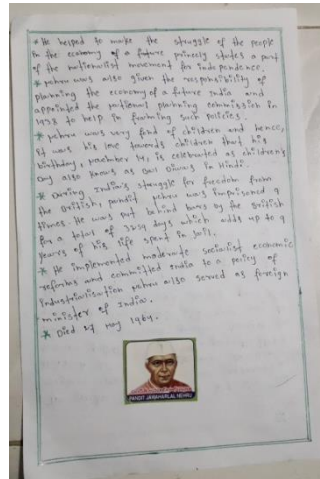 * He helped to make the struggle of the people
in the economy of a future princely states a part
of the nationalist movement for independence.
* Nehru was also given the responsibility of
planning the economy of a future India and
appointed the national planning commission in
1938 to help in framing such policies.
* Nehru was very fond of children and hence,
it was his love towards children that his
birthday, November 14, is celebrated as children's
Day also known as Bal Diwas in Hindi.
* During India's struggle for freedom from
the British, pandit Nehru was imprisoned 9
times. He was put behind bars by the British
for a total of 3259 days, which adds up to 9
years of his life spent in jail.
* He implemented moderate socialist economic
reforms and committed India to a policy of
industrialisation Nehru also served as foreign
minister of India.
* Died 27 may 1964.
PANDIT JAWAHARLAL NEHRU